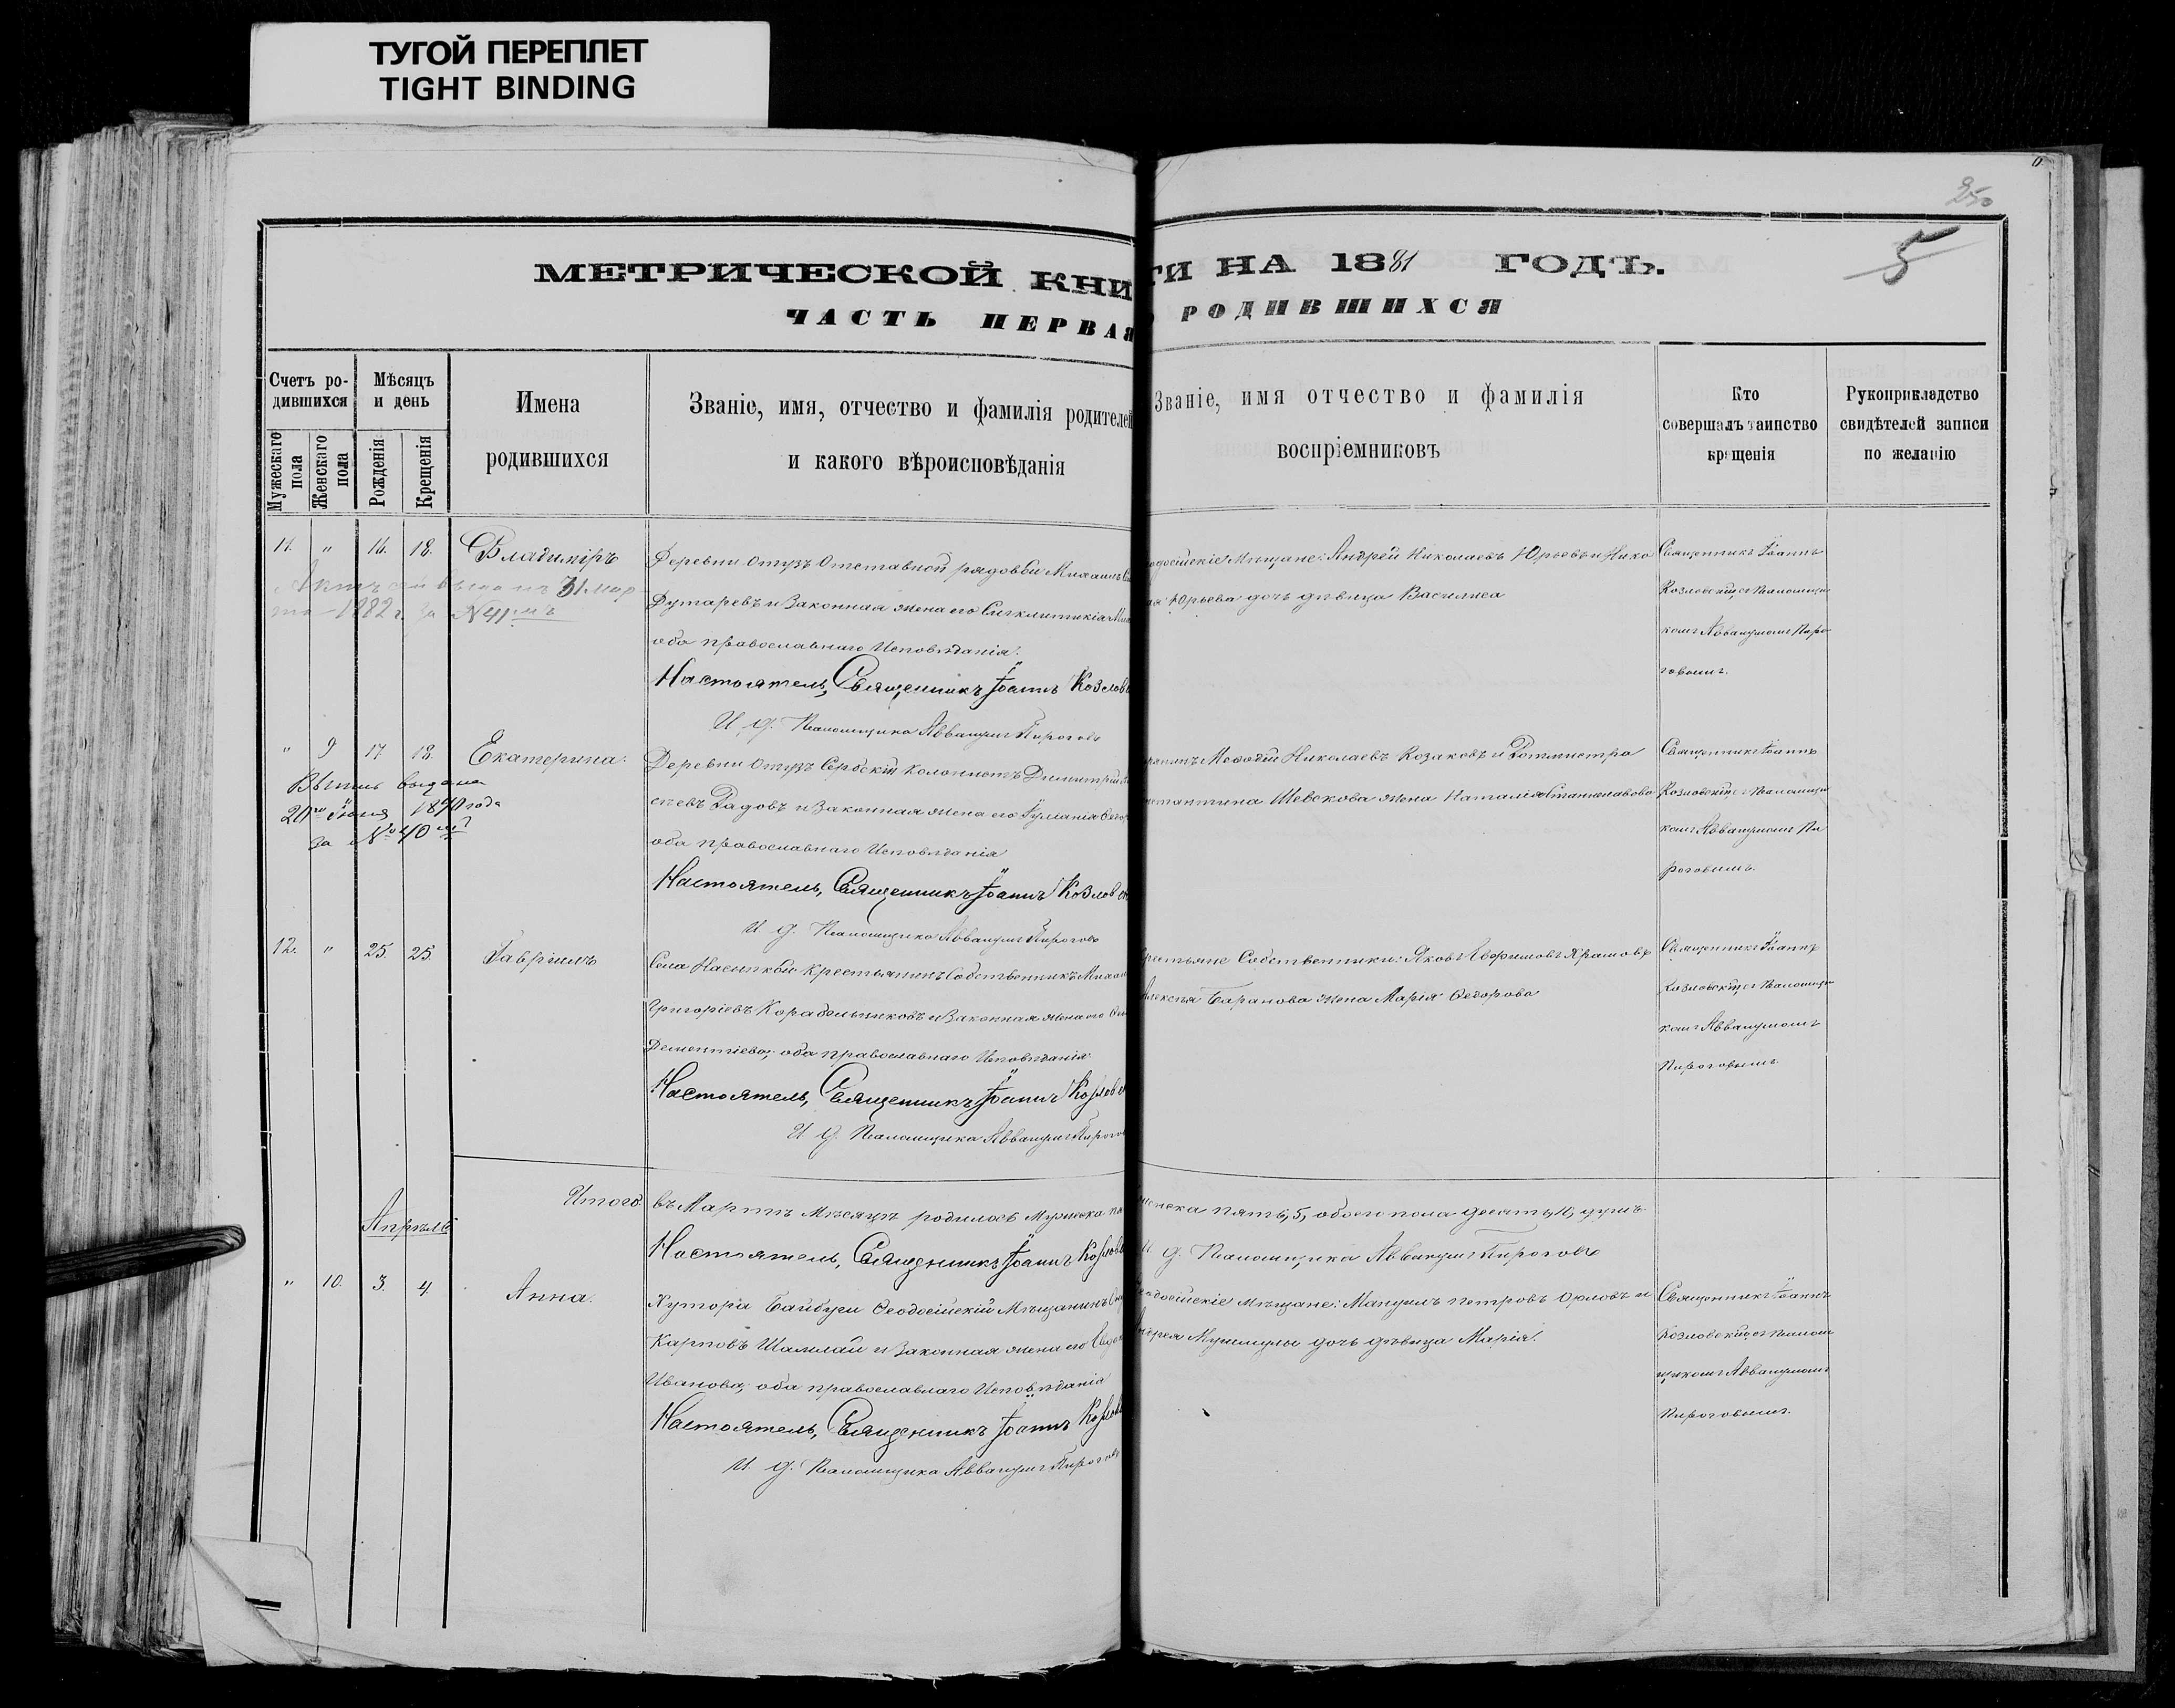 ТУГОЙ ПЕРЕПЛЕТ
TIGHT BINDING
250
5
МЕТРИЧЕСКОЙ КНИ ГИ НА 1881 ГОДЪ.
ЧАСТЬ ПЕРВАЯ РОДИВШИХСЯ
Счетъ ро-
дившихся
Мужескаго пола
Женскаго пола
Мѣсяцъ
и день
Рожденія
Крещенія
Имена
родившихся
Званіе, имя, отчество и фамилія родителей
и какого вѣроисповѣданія
Званіе, имя отчество и фамилія
воспріемниковъ
Кто
совершалъ таинство
крещенія
Рукоприкладство
свидѣтелей записи
по желанію
11. " 16. 18. Владиміръ
31 мар
та 1882 г. за N 41мъ
Деревни Отузъ Отставной рядовой Михаилъ
и Законная жена его Синклитикія
оба православнаго Исповѣданія.
Настоятель, Священникъ Іоаннъ Козлов
И. д. Псаломщика Аввакумъ Пирогов
одосійскіе Мѣщане: Андрей Николаевъ Юрьевъ и Нико
Юрьева дочь дѣвица Василиса
Священникъ Іоаннъ
Козловскій съ Псаломщи
комъ Аввакумомъ Пиро
говымъ.
" 9 17 18. Екатерина.
выдана
20го Іюня 1890 года
за № 40мъ
Деревни Отузъ Сербскій Колонистъ Димитрій
и Законная жена его
оба православнаго Исповѣданія
Настоятель, Священникъ Іоаннъ Козлов
И. д. Псаломщика Аввакумъ Пирогов
Меѳодій Николаевъ Козаковъ и Ротмистра
нстантина Шевскова жена Наталія Станиславова
Священникъ Іоаннъ
Козловскій съ Псаломщи
комъ Аввакумомъ Пи
роговымъ.
12. " 25. 25. Гавріилъ
Села Насыпкой Крестьянинъ Собственникъ Михаи
Григоріевъ Корабельниковъ и Законная жена его
Дементіева, оба православнаго Исповѣданія
Настоятель, Священникъ Іоаннъ Козлов
И. д. Псаломщика Аввакумъ Пирогов
рестьяне Собственники: Яковъ Ефимовъ Храмовъ
Алексѣя Баранова жена Марія Ѳедорова
Священникъ Іоаннъ
Козловскій съ Псаломщи
комъ Аввакумомъ
Пироговымъ.
Итого въ Мартѣ Мѣсяцѣ родилось Мужеска па
женска пять, 5, обоего пола десять, 10, душъ.
Настоятель, Священникъ Іоаннъ Козлов
И. д. Псаломщика Аввакумъ Пироговъ
Апрѣль
" 10. 3. 4. Анна.
Хутора Байбуги Ѳеодосійскій Мѣщанинъ
Карповъ и Законная жена его
Иванова, оба православнаго Исповѣданія
Настоятель, Священникъ Іоаннъ Козлов
И. д. Псаломщика Аввакумъ Пирогов
одосійскіе Мѣщане: Мануилъ Петровъ Орловъ и
дочь дѣвица Марія.
Священникъ Іоаннъ
Козловскій съ Псалом
щикомъ Аввакумомъ
Пироговымъ.